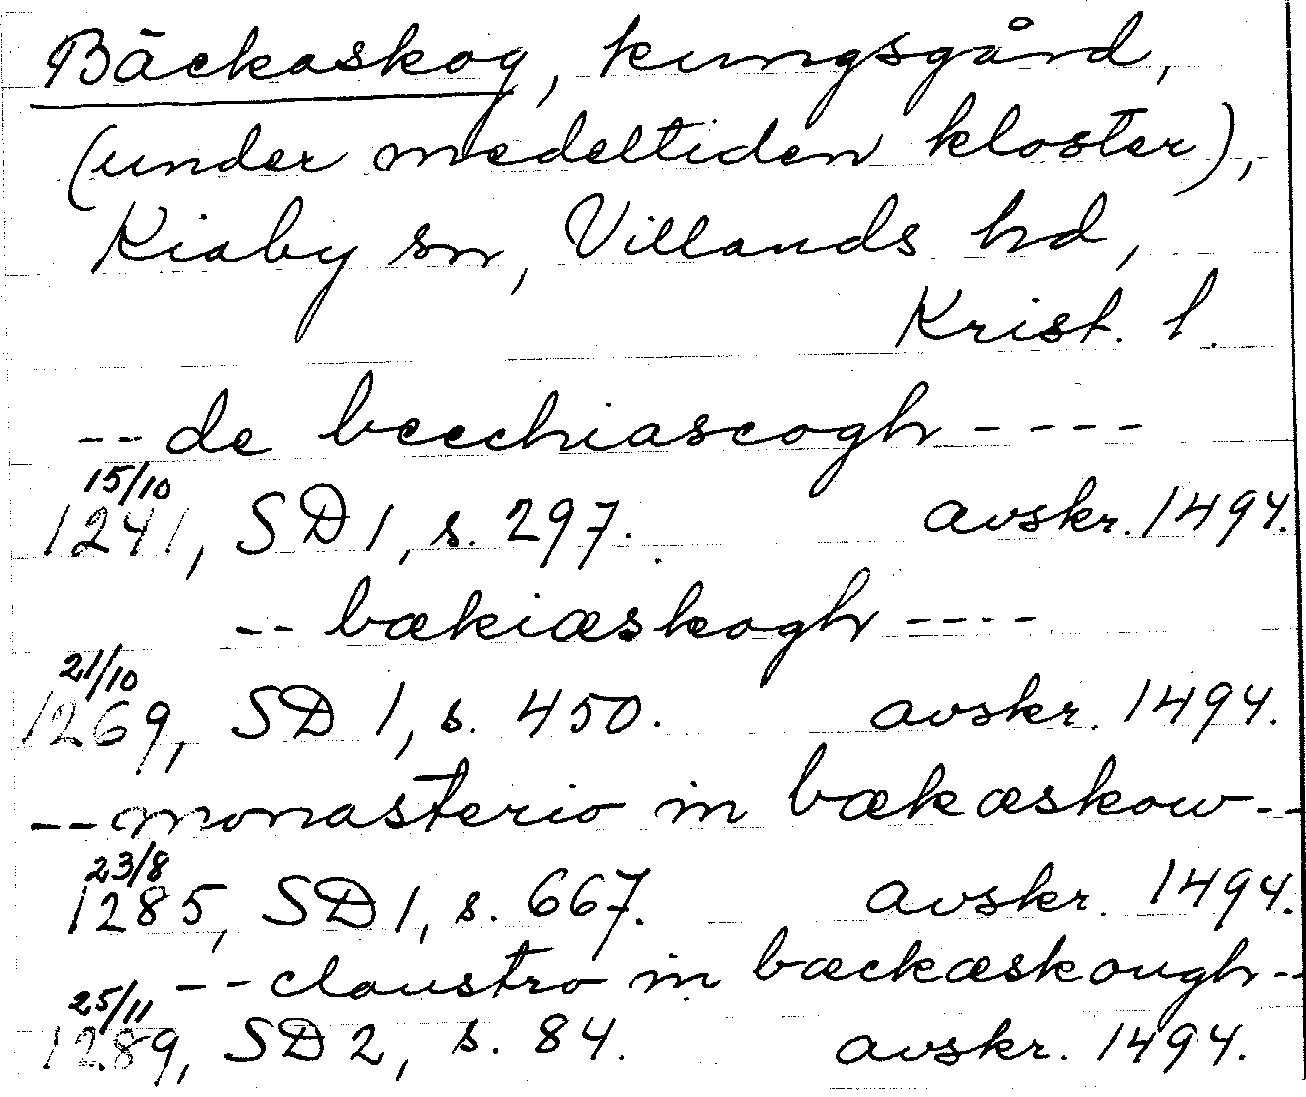 Bäckaskog, kungsgård,
(under medeltiden kloster),
Kiaby sn, Villands hd,
Krist. l.
-- de becchiascogh ----
15/10
1241, SD 1, s. 297. avskr. 1494.
-- bækiæskogh ----
21/10
1269, SD 1, s. 450. avskr. 1494.
-- monasterio in bækæskow --
23/8
1285, SD 1, s. 667. avskr. 1494.
-- claustro in bæckæskough --
25/11
1289, SD 2, s. 84. avskr. 1494.